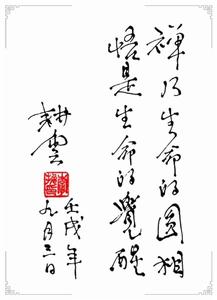 禅乃生命的圆相
悟是生命的覺醒
耕雲
壬戌年
九月三日